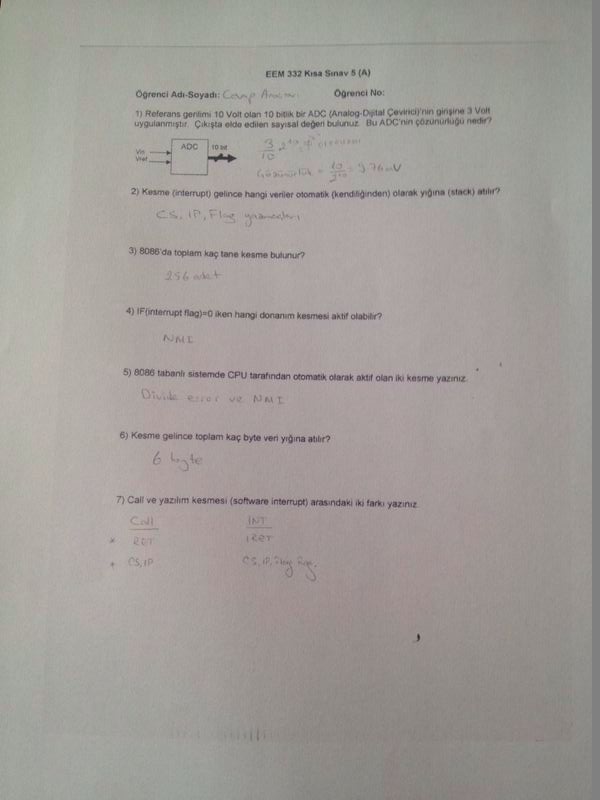 EEM 332 Kısa Sınav 5 (A)
Öğrenci Adı-Soyadı: Cevap Anahtarı Öğrenci No:
1) Referans gerilimi 10 Volt olan 10 bitlik bir ADC (Analog-Dijital Çevirici)'nin girişine 3 Volt
uygulanmıştır. Çıkışta elde edilen sayısal değeri bulunuz. Bu ADC'nin çözünürlüğü nedir?
ADC 10 bit
Vin
Vref
3/10 2^10
Çözünürlük = 10/2^10 = 9.76mV
2) Kesme (interrupt) gelince hangi veriler otomatik (kendiliğinden) olarak yığına (stack) atılır?
CS, IP, Flag yazmaçları
3) 8086'da toplam kaç tane kesme bulunur?
256 adet
4) IF(interrupt flag)=0 iken hangi donanım kesmesi aktif olabilir?
NMI
5) 8086 tabanlı sistemde CPU tarafından otomatik olarak aktif olan iki kesme yazınız.
Divide error ve NMI
6) Kesme gelince toplam kaç byte veri yığına atılır?
6 byte
7) Call ve yazılım kesmesi (software interrupt) arasındaki iki farkı yazınız.
Call INT
* RET IRET
* CS, IP CS, IP, Flag Reg.